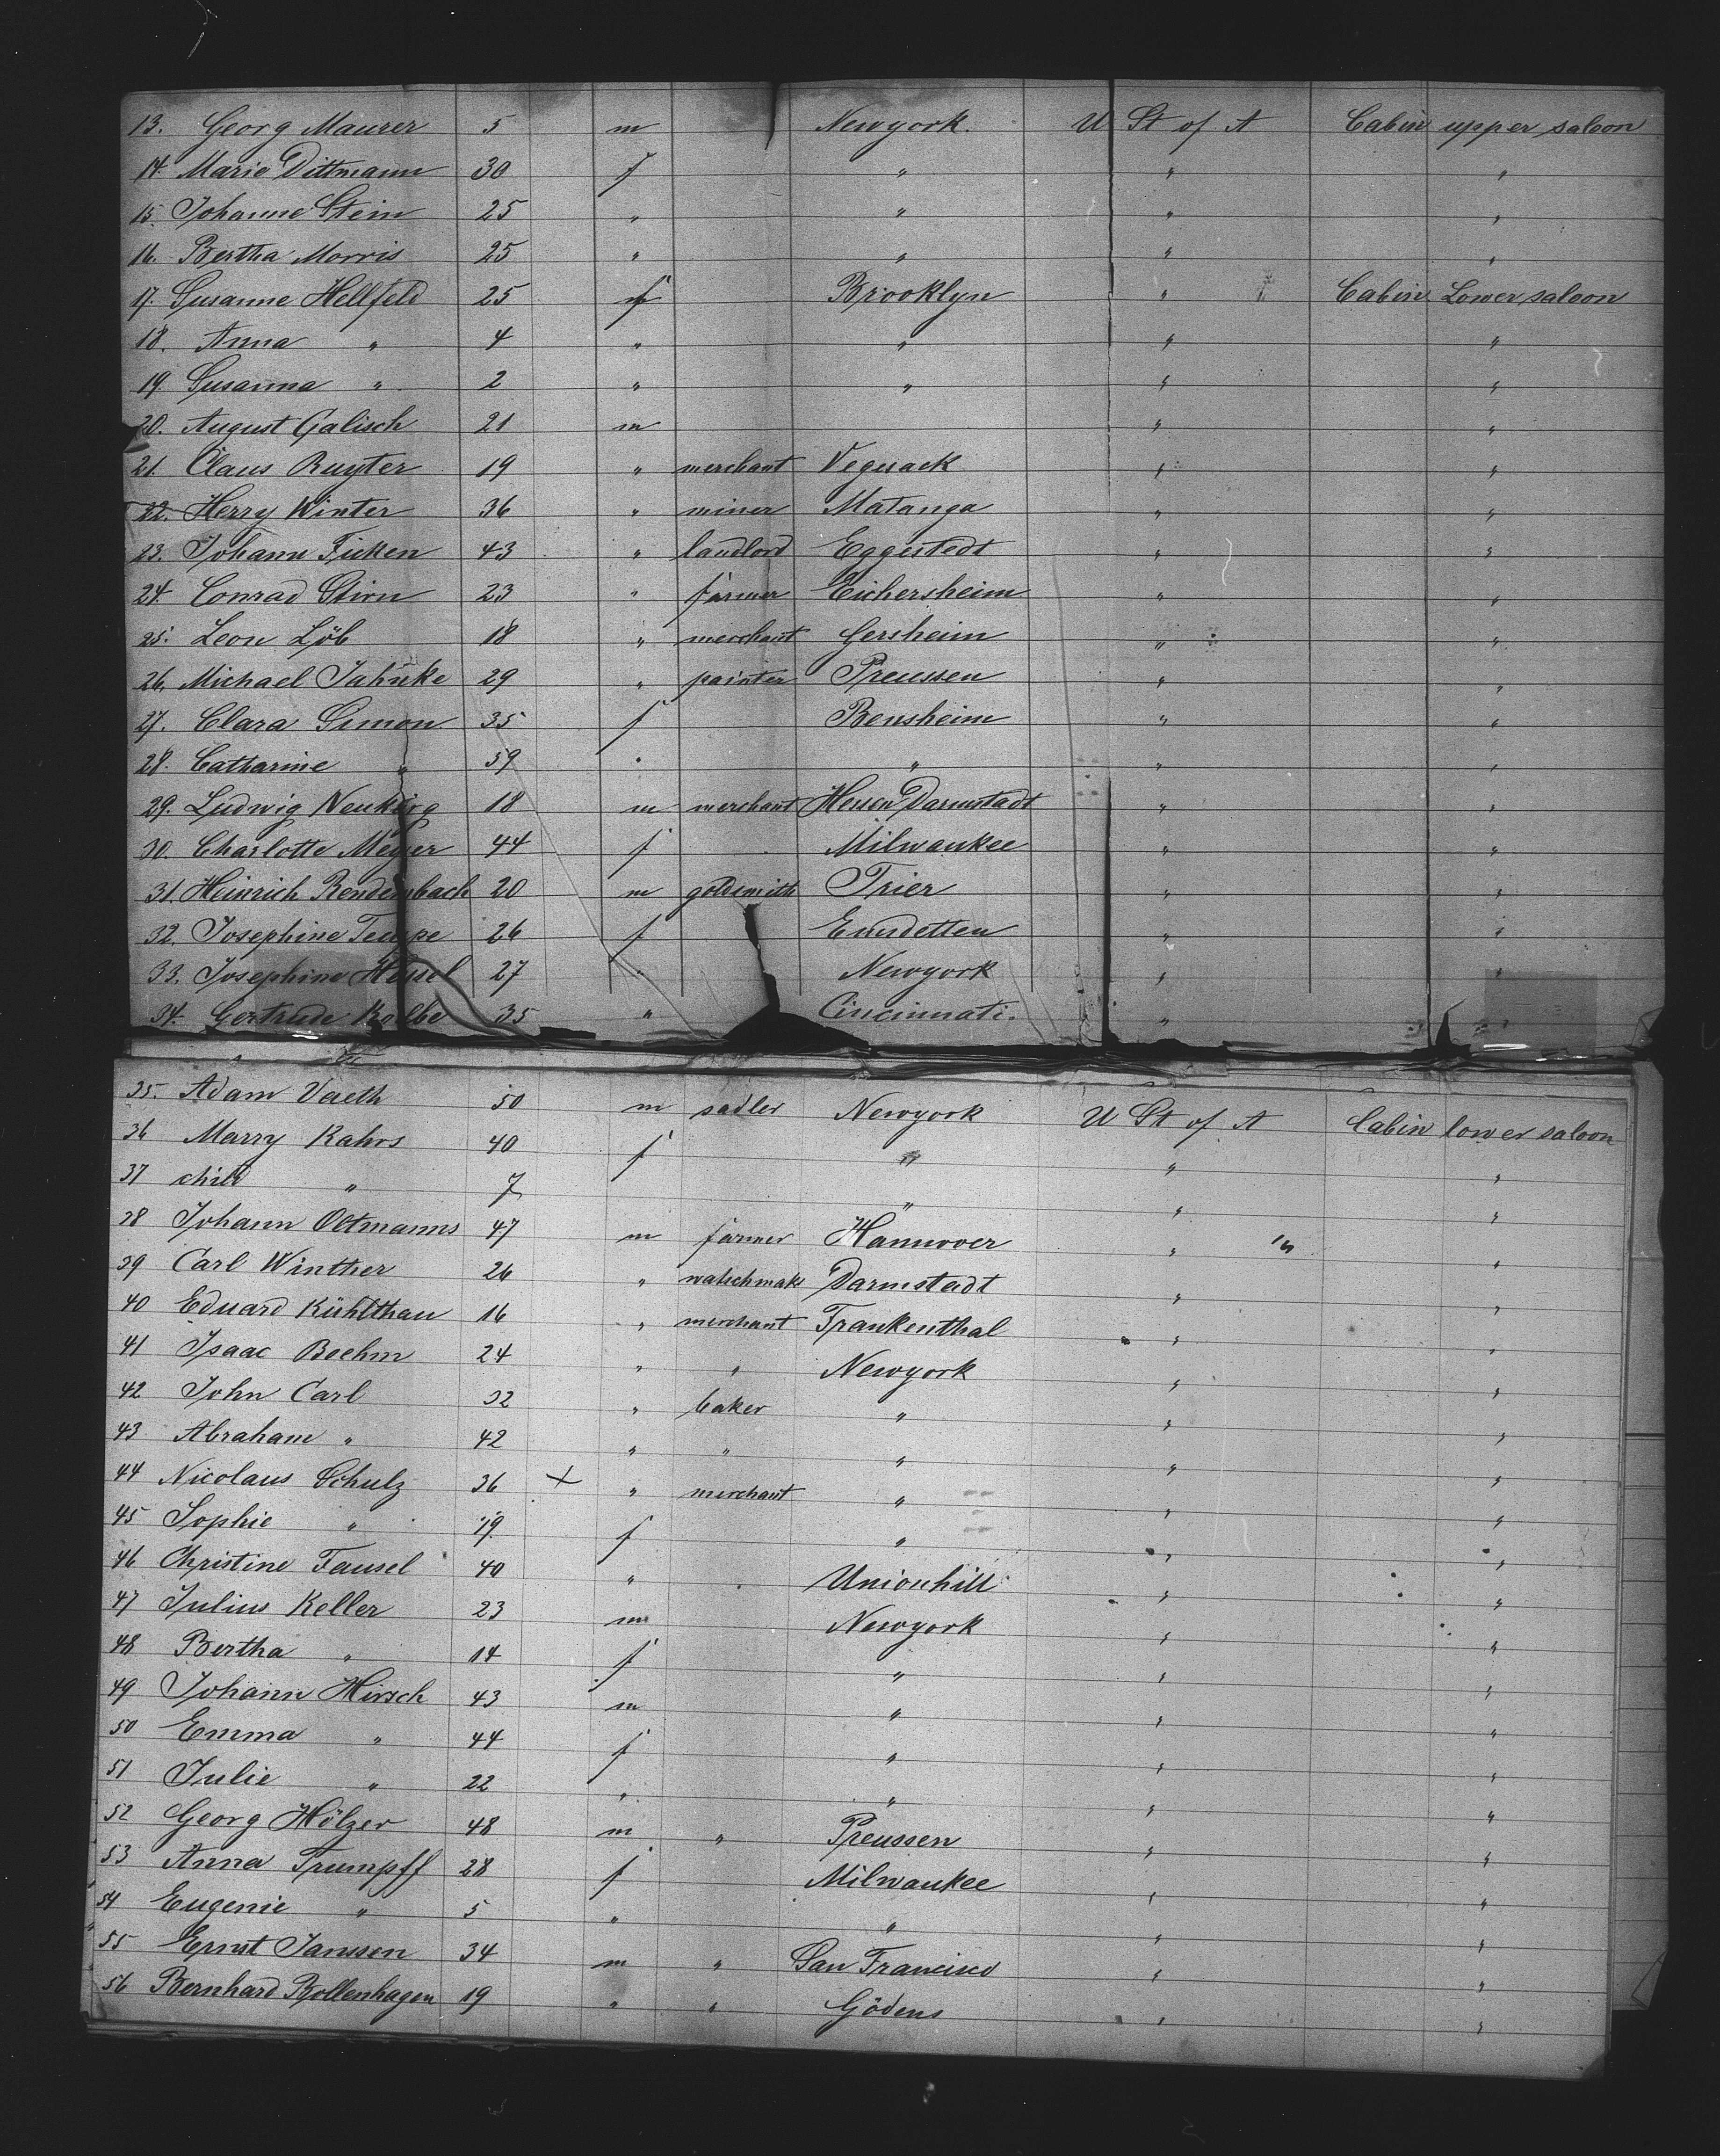 13. Georg Maurer 5 m Newyork. U St of A Cabin upper saloon
14. Marie Dittmann 30 f " " "
15. Johanne Stein 25 " " " "
16. Bertha Morris 25 " " " "
17. Susanne Hellfeld 25 f Brooklyn " Cabin Lower saloon
18. Anna " 4 " " " "
19. Susanna " 2 " " " "
20. August Galisch 21 m " "
21. Claus Ruyter 19 " merchant Vegesack " "
22. Herry Winter 36 " miner Matanga " "
23. Johann Ficken 43 " landlord Eggestedt " "
24. Conrad Stirn 23 " farmer Eichersheim " "
25. Leon Löb 18 " merchant Gersheim " "
26. Michael Jahnke 29 " painter Preussen " "
27. Clara Simon 35 f Bensheim " "
28. Catharine " 59 " " " "
29. Ludwig 18 m merchant Hessen Darmstadt " "
30. Charlotte Meyer 44 f Milwaukee " "
31. Heinrich Rendenbach 20 m goldsmith Trier " "
32. Josephine 26 f Emsdetten " "
33. Josephine Hessel 27 " Newyork " "
34. Gertrude Kolbe 35 " Cincinnati. "
35. Adam Vaeth 50 m sadler Newyork U St of A Cabin lower saloon
36 Marry Kahrs 40 f " " "
37 child " 7 " " "
38 Johann Oltmanns 47 m farmer Hannover " "
39 Carl Winther 26 " watschmakr Darmstadt " "
40 Eduard Kühlthau 16 " merchant Frankenthal " "
41 Isaac Boehm 24 " " Newyork " "
42 John Carl 32 " baker " " "
43 Abraham " 42 " " " " "
44 Nicolaus Schulz 36 x " merchant " " "
45 Sophie " 19 f " " "
46 Christine Fausel 40 " Unionhill " "
47 Julius Keller 23 m Newyork " "
48 Bertha " 14 f " " "
49 Johann Hirsch 43 m " " "
50 Emma " 44 f " " "
51 Julie " 22 " " " "
52 Georg Hölzer 48 m " Preussen " "
53 Anna Trumpff 28 f Milwaukee " "
54 Eugenie " 5 " " " "
55 Ernst Janssen 34 m " San Francisco " "
56 Bernhard Bollenhagen 19 " " Gödens " "